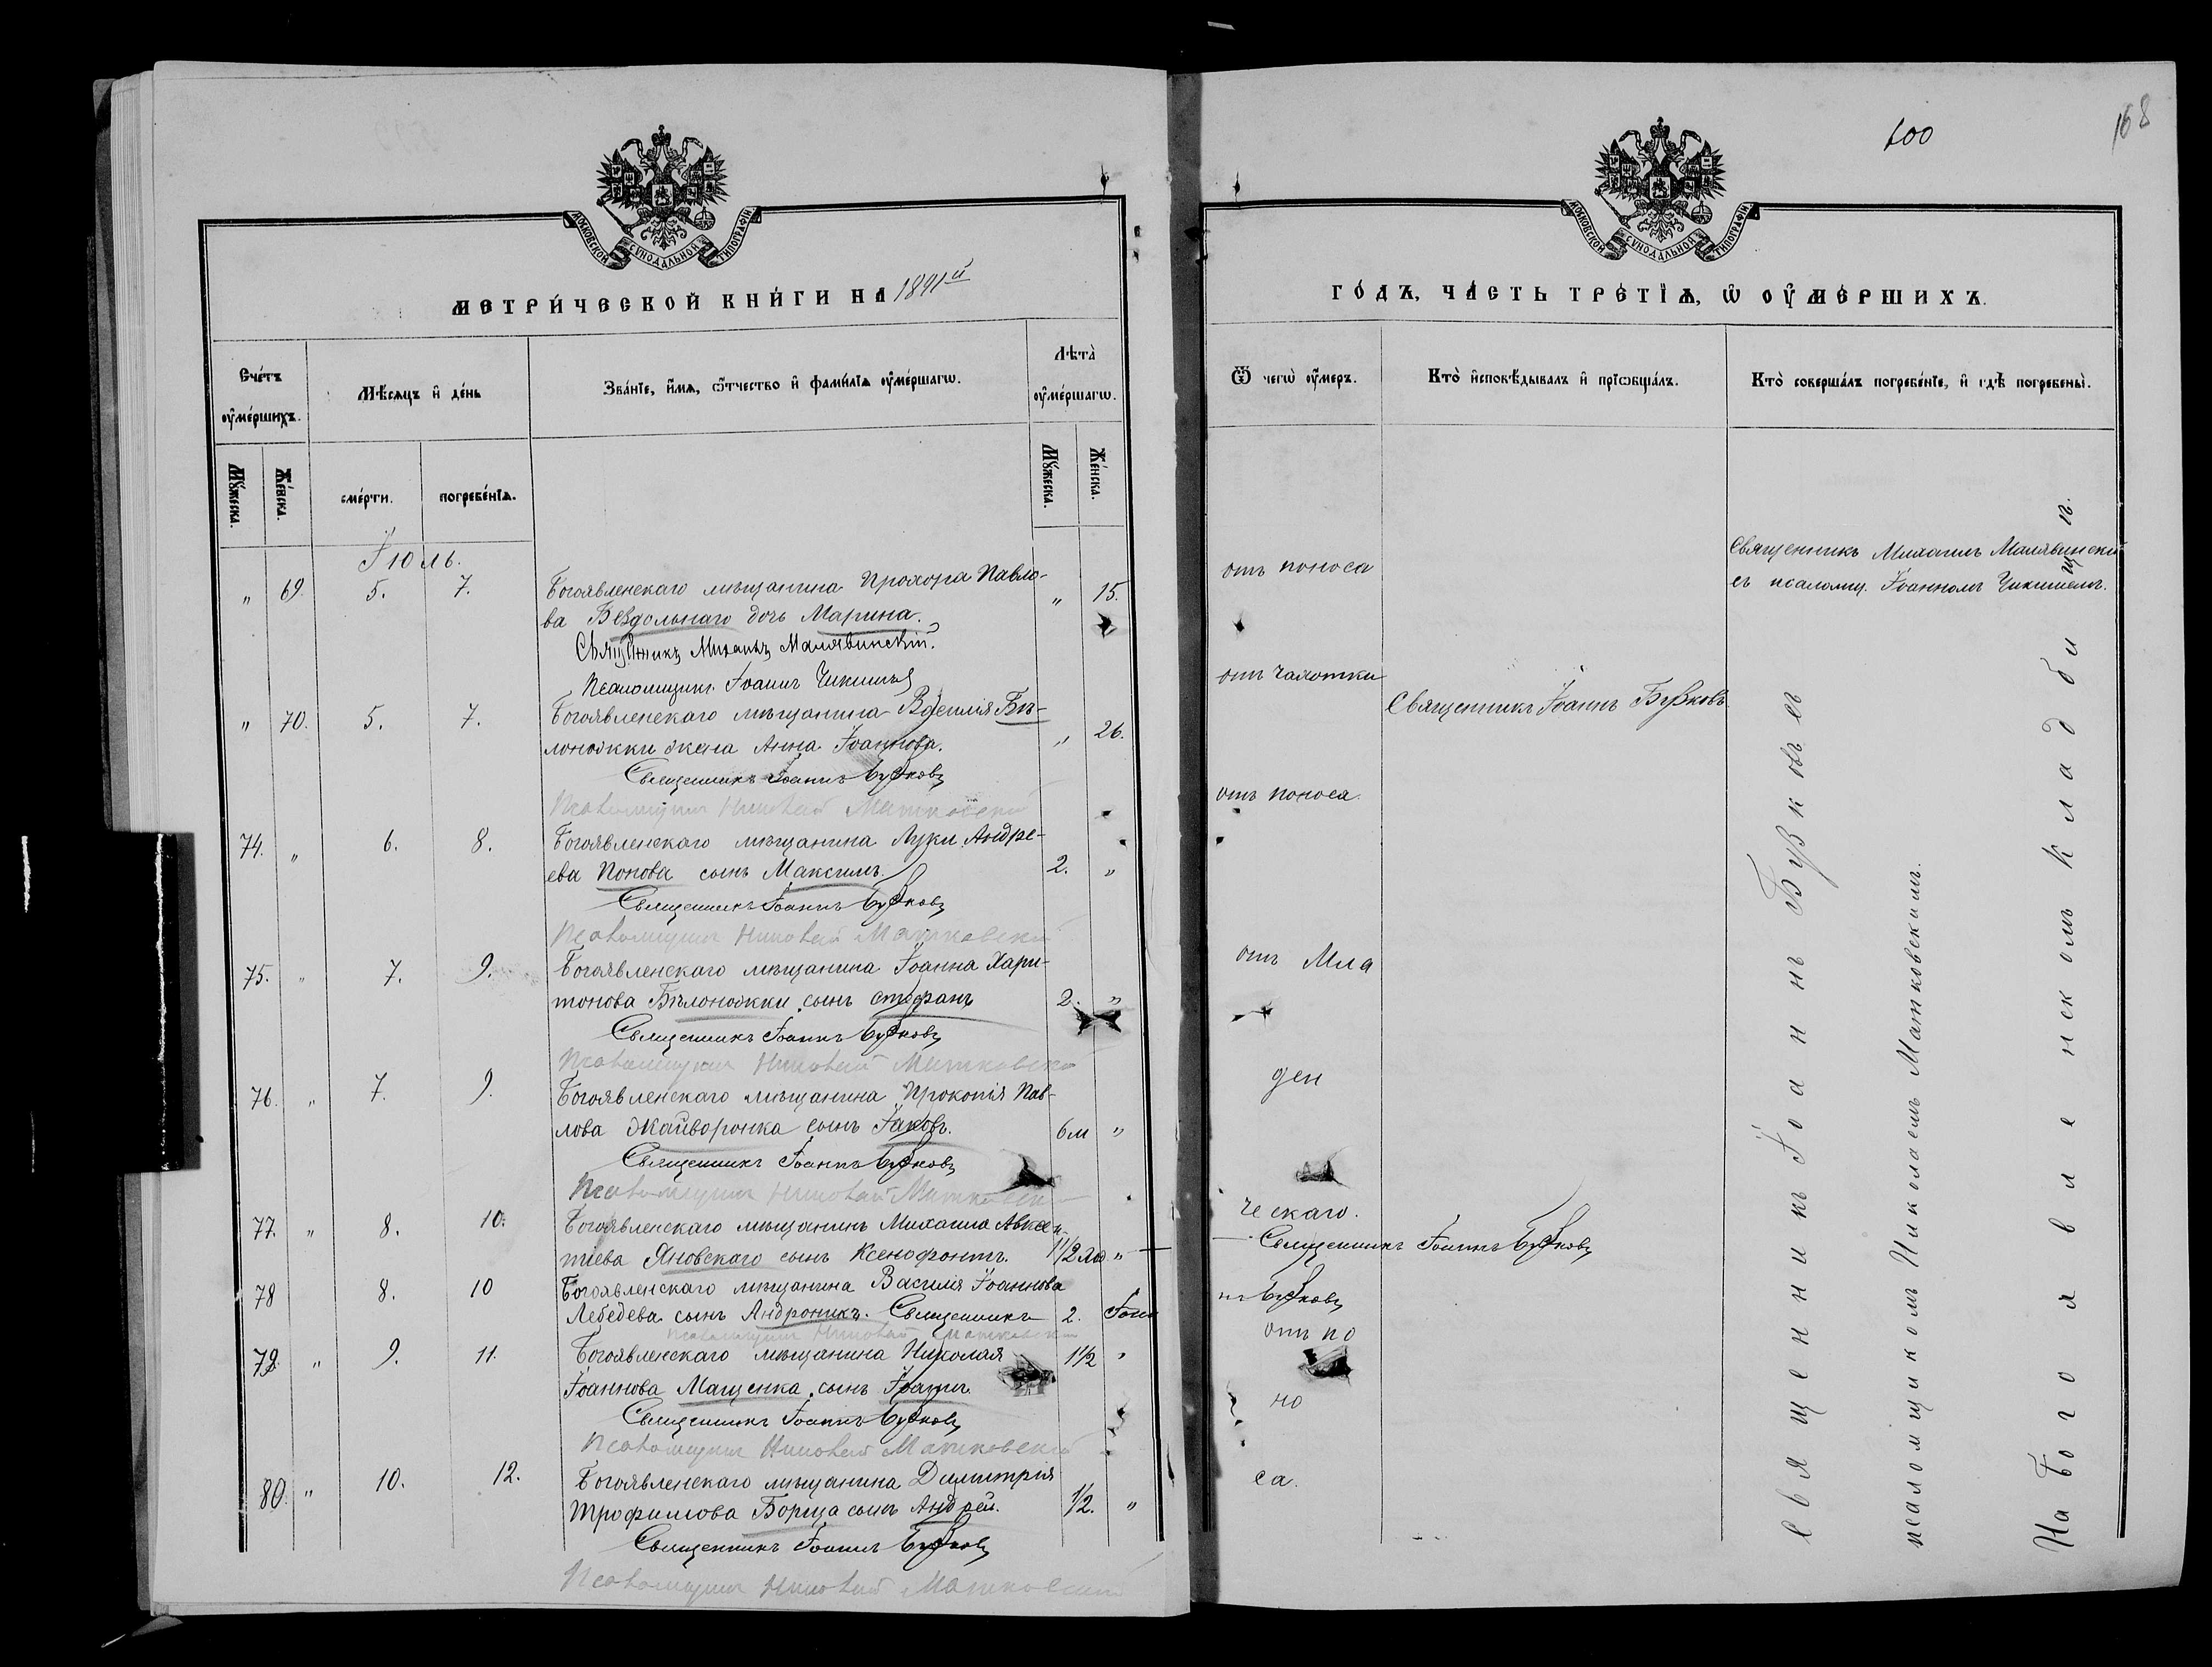 МОСКОВСКОЙ СѴНОДАЛЬНОЙ ТИПОГРАФІИ
МЕТРИ́ЧЕСКОЙ КНИ́ГИ НА 1891й
Сче́тъ ᲂу҆ме́ршихъ.
Мѣ́сяцъ и҆ де́нь
Зва́нїе, и҆́мѧ, ѻ҆́тчество и҆ фами́лїѧ ᲂу҆ме́ршагѡ.
Лѣта̀ ᲂу҆ме́ршагѡ.
Мꙋ́жеска.
Же́нска.
сме́рти.
погребе́нїѧ.
Мꙋ́жеска.
Же́нска.
Іюль.
" 69 5. 7. Богоявленскаго мѣщанина Прохора Павло- " 15.
ва Бездольнаго дочь Марина.
Священникъ Михаилъ Малявинскій.
Псаломщикъ Іоаннъ Чикишевъ
" 70. 5. 7. Богоявленскаго мѣщанина Василія Бѣ-
лоножки жена Анна Іоаннова. " 26.
Священникъ Іоаннъ Бужковъ
Псаломщикъ Николай Матковскій
74. " 6. 8. Богоявленскаго мѣщанина Луки Андре-
ева Попова сынъ Максимъ. 2. "
Священникъ Іоаннъ Бужковъ
Псаломщикъ Николай Матковскій
75. " 7. 9. Богоявленскаго мѣщанина Іоанна Хари-
тонова Бѣлоножки сынъ Стефанъ 2. "
Священникъ Іоаннъ Бужковъ
Псаломщикъ Николай Матковскій
76. " 7. 9. Богоявленскаго мѣщанина Прокопія Пав-
лова Жайворонка сынъ Іаковъ. 6 м "
Священникъ Іоаннъ Бужковъ
Псаломщикъ Николай Матковскій
77. " 8. 10. Богоявленскаго мѣщанинъ Михаила Авксен-
тіева Яновскаго сынъ Ксенофонтъ. 1 1/2 "
78 8. 10 Богоявленскаго мѣщанина Василія Іоаннова
Лебедева сынъ Андроникъ. Священникъ 2. Іоан
Псаломщикъ Николай Матковскій
79. " 9. 11. Богоявленскаго мѣщанина Николая 1 1/2 "
Іоаннова Мащенка сынъ Іоаннъ.
Священникъ Іоаннъ Бужковъ
Псаломщикъ Николай Матковскій
80. " 10. 12. Богоявленскаго мѣщанина Димитрія
Трофимова Борща сынъ Андрей. 1/2. "
Священникъ Іоаннъ Бужковъ
Псаломщикъ Николай Матковскій
600
168
МОСКОВСКОЙ СѴНОДАЛЬНОЙ ТИПОГРАФІИ
ГО́ДЪ, ЧА́СТЬ ТРЕ́ТЇѦ, Ѡ ОУ҆МЕ́РШИХЪ.
Ѿ чегѡ̀ ᲂу҆́меръ.
Кто̀ и҆сповѣ́дывалъ и҆ прїѡбща́лъ.
Кто̀ соверша́лъ погребе́нїе, и҆ гдѣ̀ погребены̀.
отъ поноса
Священникъ Михаилъ Малявинскій
съ псаломщ. Іоанномъ Чикишевъ.
отъ чахотки
Священникъ Іоаннъ Бужковъ
отъ поноса.
отъ Мла
ден
ческаго.
Священникъ Іоаннъ Бужковъ
нъ Бужковъ
отъ по
но
са.
Священникъ Іоаннъ Бужковъ съ
псаломщикомъ Николаемъ Матковскимъ.
На Богоявленскомъ кладбищѣ.